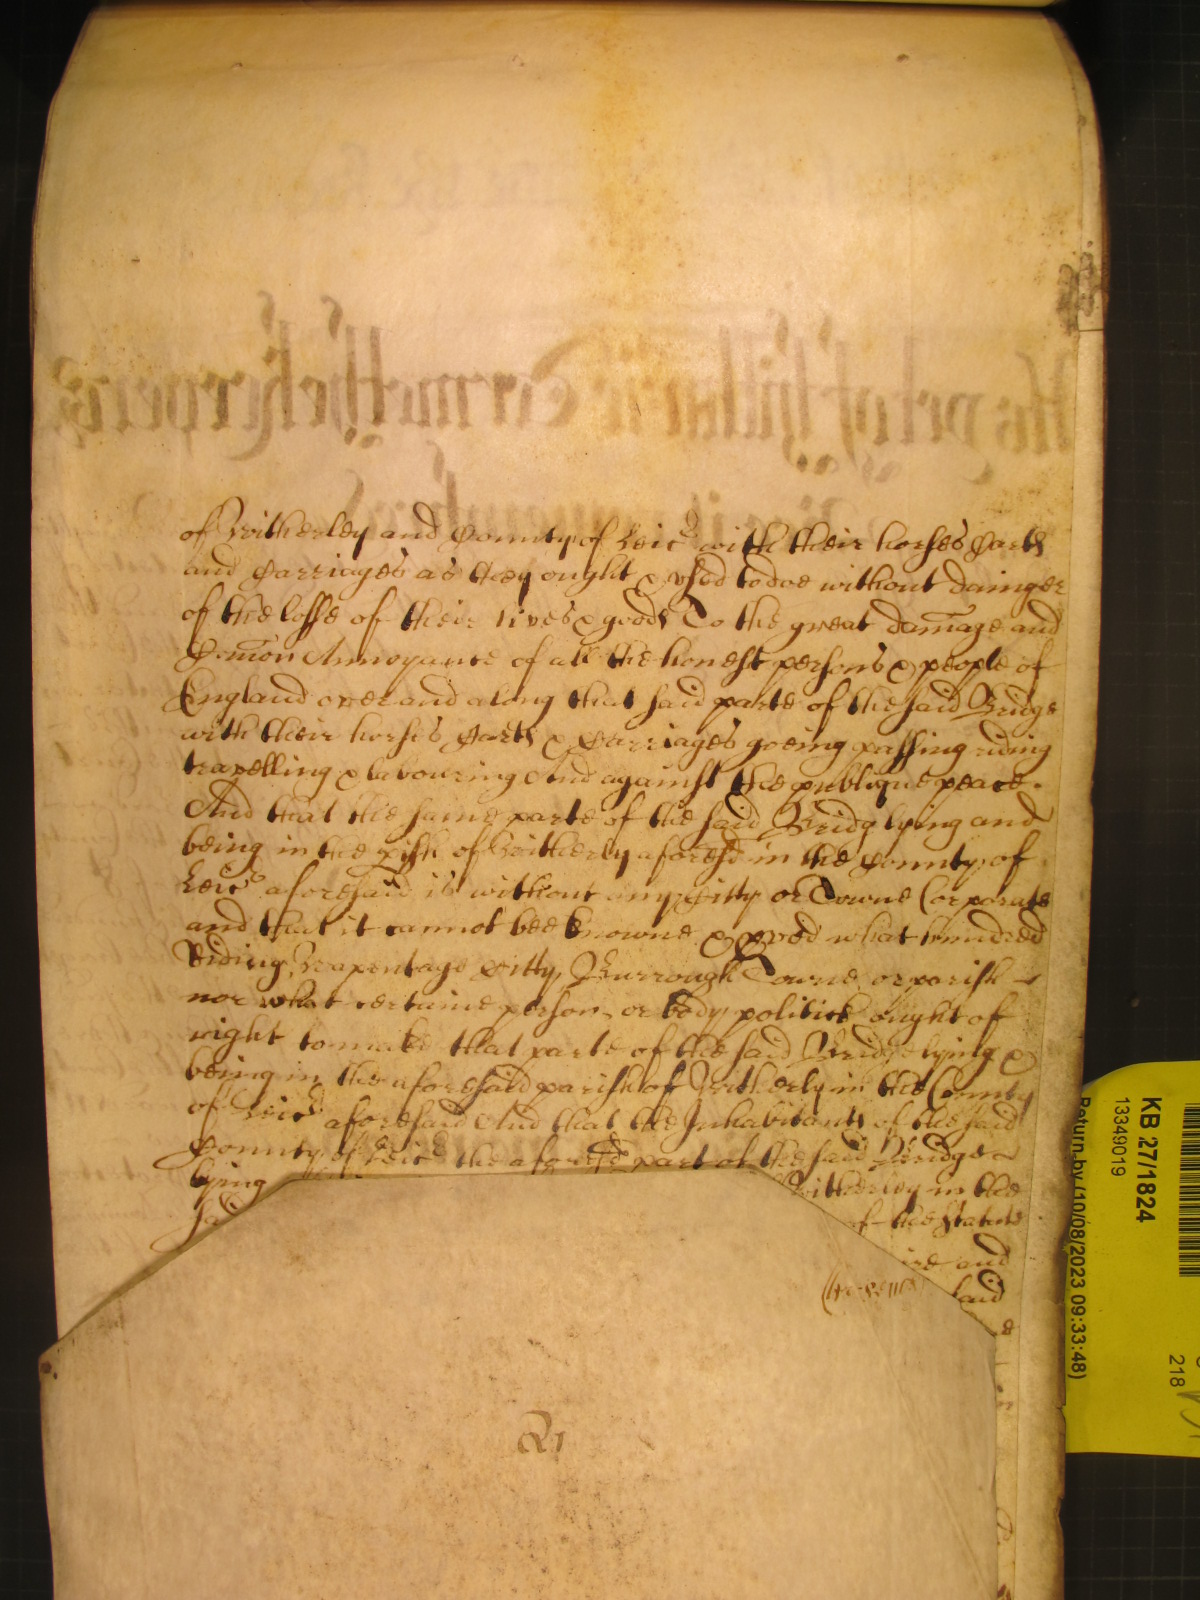 of Witherley and County of Leic with their horses Carts
and Carriages as they ought & used to doe without dainger
of the losse of their lives & goods To the great damage and
Comon Annoyance of all the honest persons & people of
England over and along that said parte of the said Bridge
with their horses Carts & Carriages goeing passing riding
travelling & labouring And against the publique peace.
And that the same parte of the said Bridg lying and
being in the pish of Witherly aforesd in the County of
Leic aforesaid is without any Citty or Towne Corporate
and that it cannot bee knowne & pved what hundred
Riding Wapentage Citty Burrough Towne or parish
nor what certaine person or body politick ought of
right to make that parte of the said Bridge lying &
being in the aforesaid parish of Witherly in the County
of Leic aforesaid And that the Inhabitants of the said
County of Leic the aforesd part of the said Bridge
lying Witherley in the
of the Statute
and
said
KB 27/1824
13349019
Return by (10/08/2023 09:33:48)
218